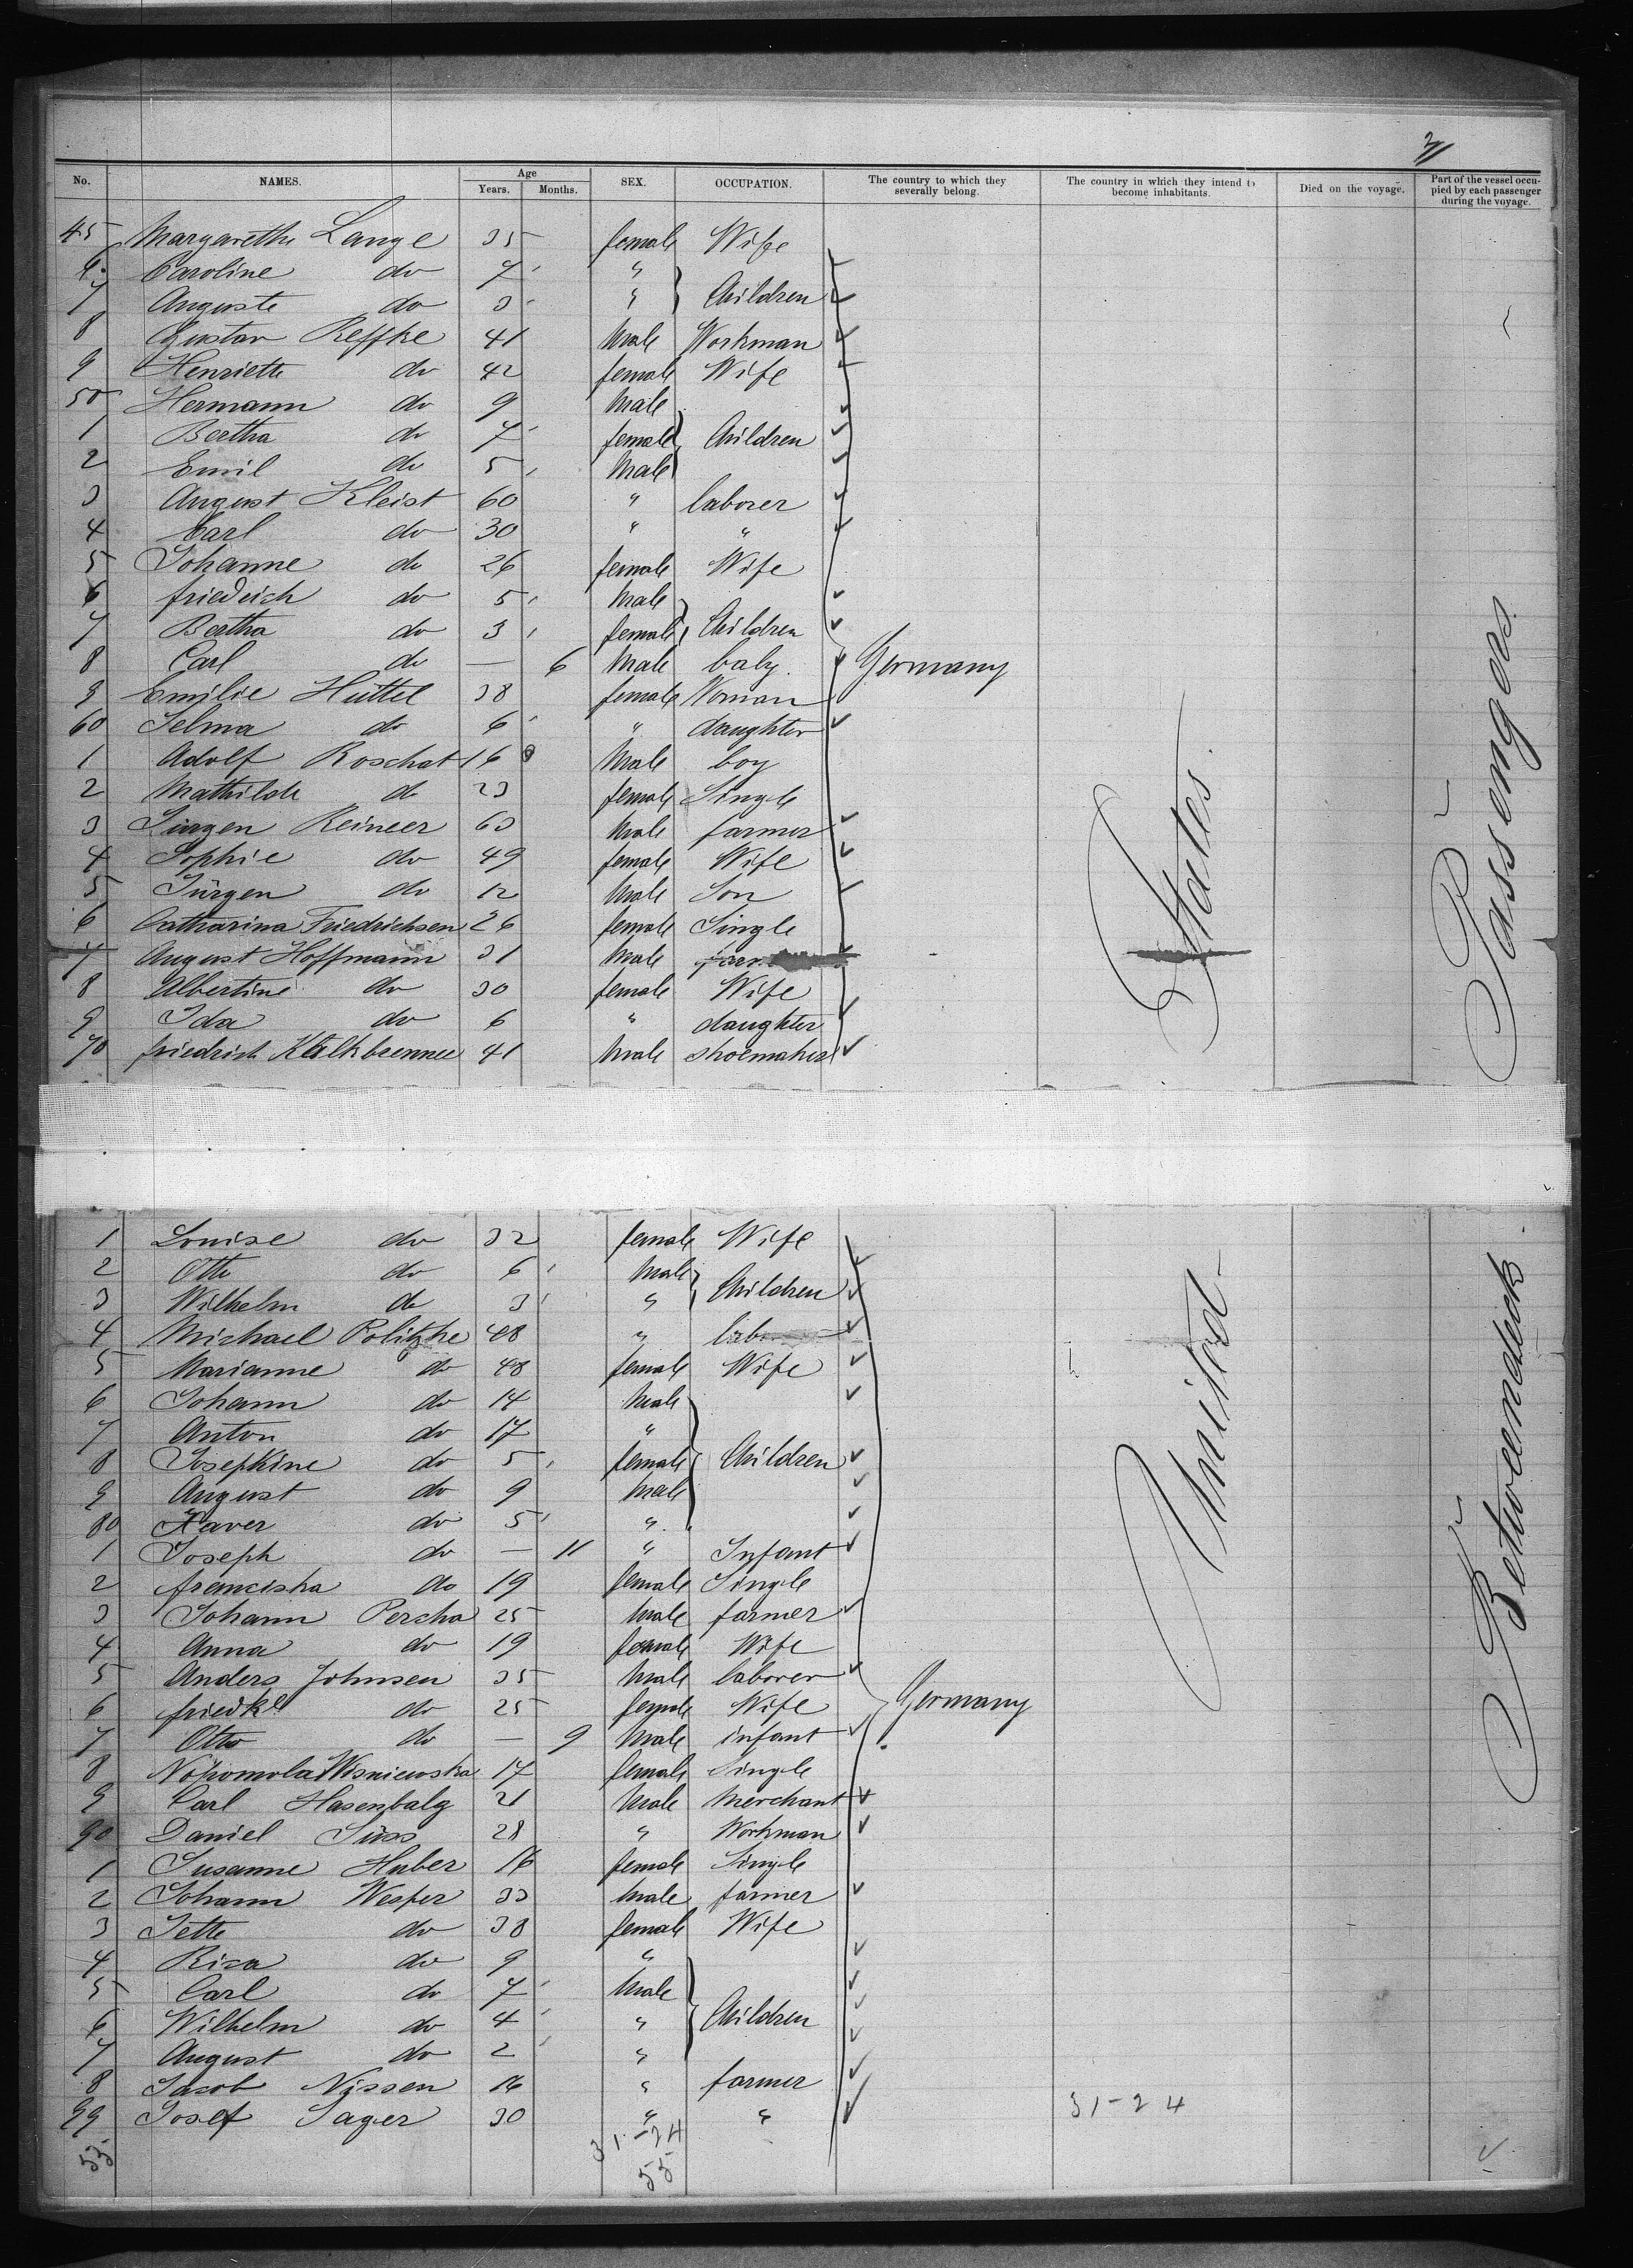 3
No. NAMES. Age Years. Months. SEX. OCCUPATION. The country to which they severally belong. The country in which they intend to become inhabitants. Died on the voyage. Part of the vessel occupied by each passenger during the voyage.
45 Margarethe Lange 35 female Wife
6 Caroline do 7 "
7 Auguste do 3 " Children
8 Gustav Reffke 41 Male Workman
9 Henriette do 42 female Wife
50 Hermann do 9 Male
1 Bertha do 7 female Children
2 Emil do 5 Male
3 August Kleist 60 " laborer
4 Carl do 30 " "
5 Johanne do 26 female Wife
6 friedrich do 5 Male
7 Bertha do 3 female Children
8 Carl do — 6 Male baby Germany
9 Emilie Hüttel 38 female Woman
60 Selma do 6 " daughter
1 Adolf Roschat 16 Male boy
2 Mathilde do 23 female Single
3 Jürgen Reineer 63 Male farmer
4 Sophie do 49 female Wife
5 Jürgen do 12 Male Son
6 Catharina Friedrichsen 26 female Single
7 August Hoffmann 31 Male farm
8 Albertine do 30 female Wife
9 Ida do 6 " daughter
70 friedrich Kalkbrenner 41 Male shoemaker
1 Louise do 32 female Wife
2 Otto do 6 Male
3 Wilhelm do 3 " Children
4 Michael Politzke 48 " lab
5 Marianne do 48 female Wife
6 Johann do 14 Male
7 Anton do 17 "
8 Josephine do 5 female Children
9 August do 9 Male
80 Xaver do 5 "
1 Joseph do — 11 " Infant
2 franciska do 19 female Single
3 Johann Percha 25 Male farmer
4 Anna do 19 female Wife
5 Anders Johnsen 35 Male laborer
6 friedke do 25 female Wife Germany
7 Otto do — 9 Male infant
8 Nopomola Wisniewska 17 female Single
9 Carl Hasenbalg 21 Male Merchant
90 Daniel Süss 28 " Workman
1 Susanne Huber 16 female Single
2 Johann Wesper 33 Male farmer
3 Jette do 38 female Wife
4 Risa do 9 "
5 Carl do 7 Male
6 Wilhelm do 4 " Children
7 August do 2 "
8 Jacob Nissen 16 " farmer
99 Josef Sager 30 " "
31-24
55
31-24
55
United States
Betweendeck Passengers